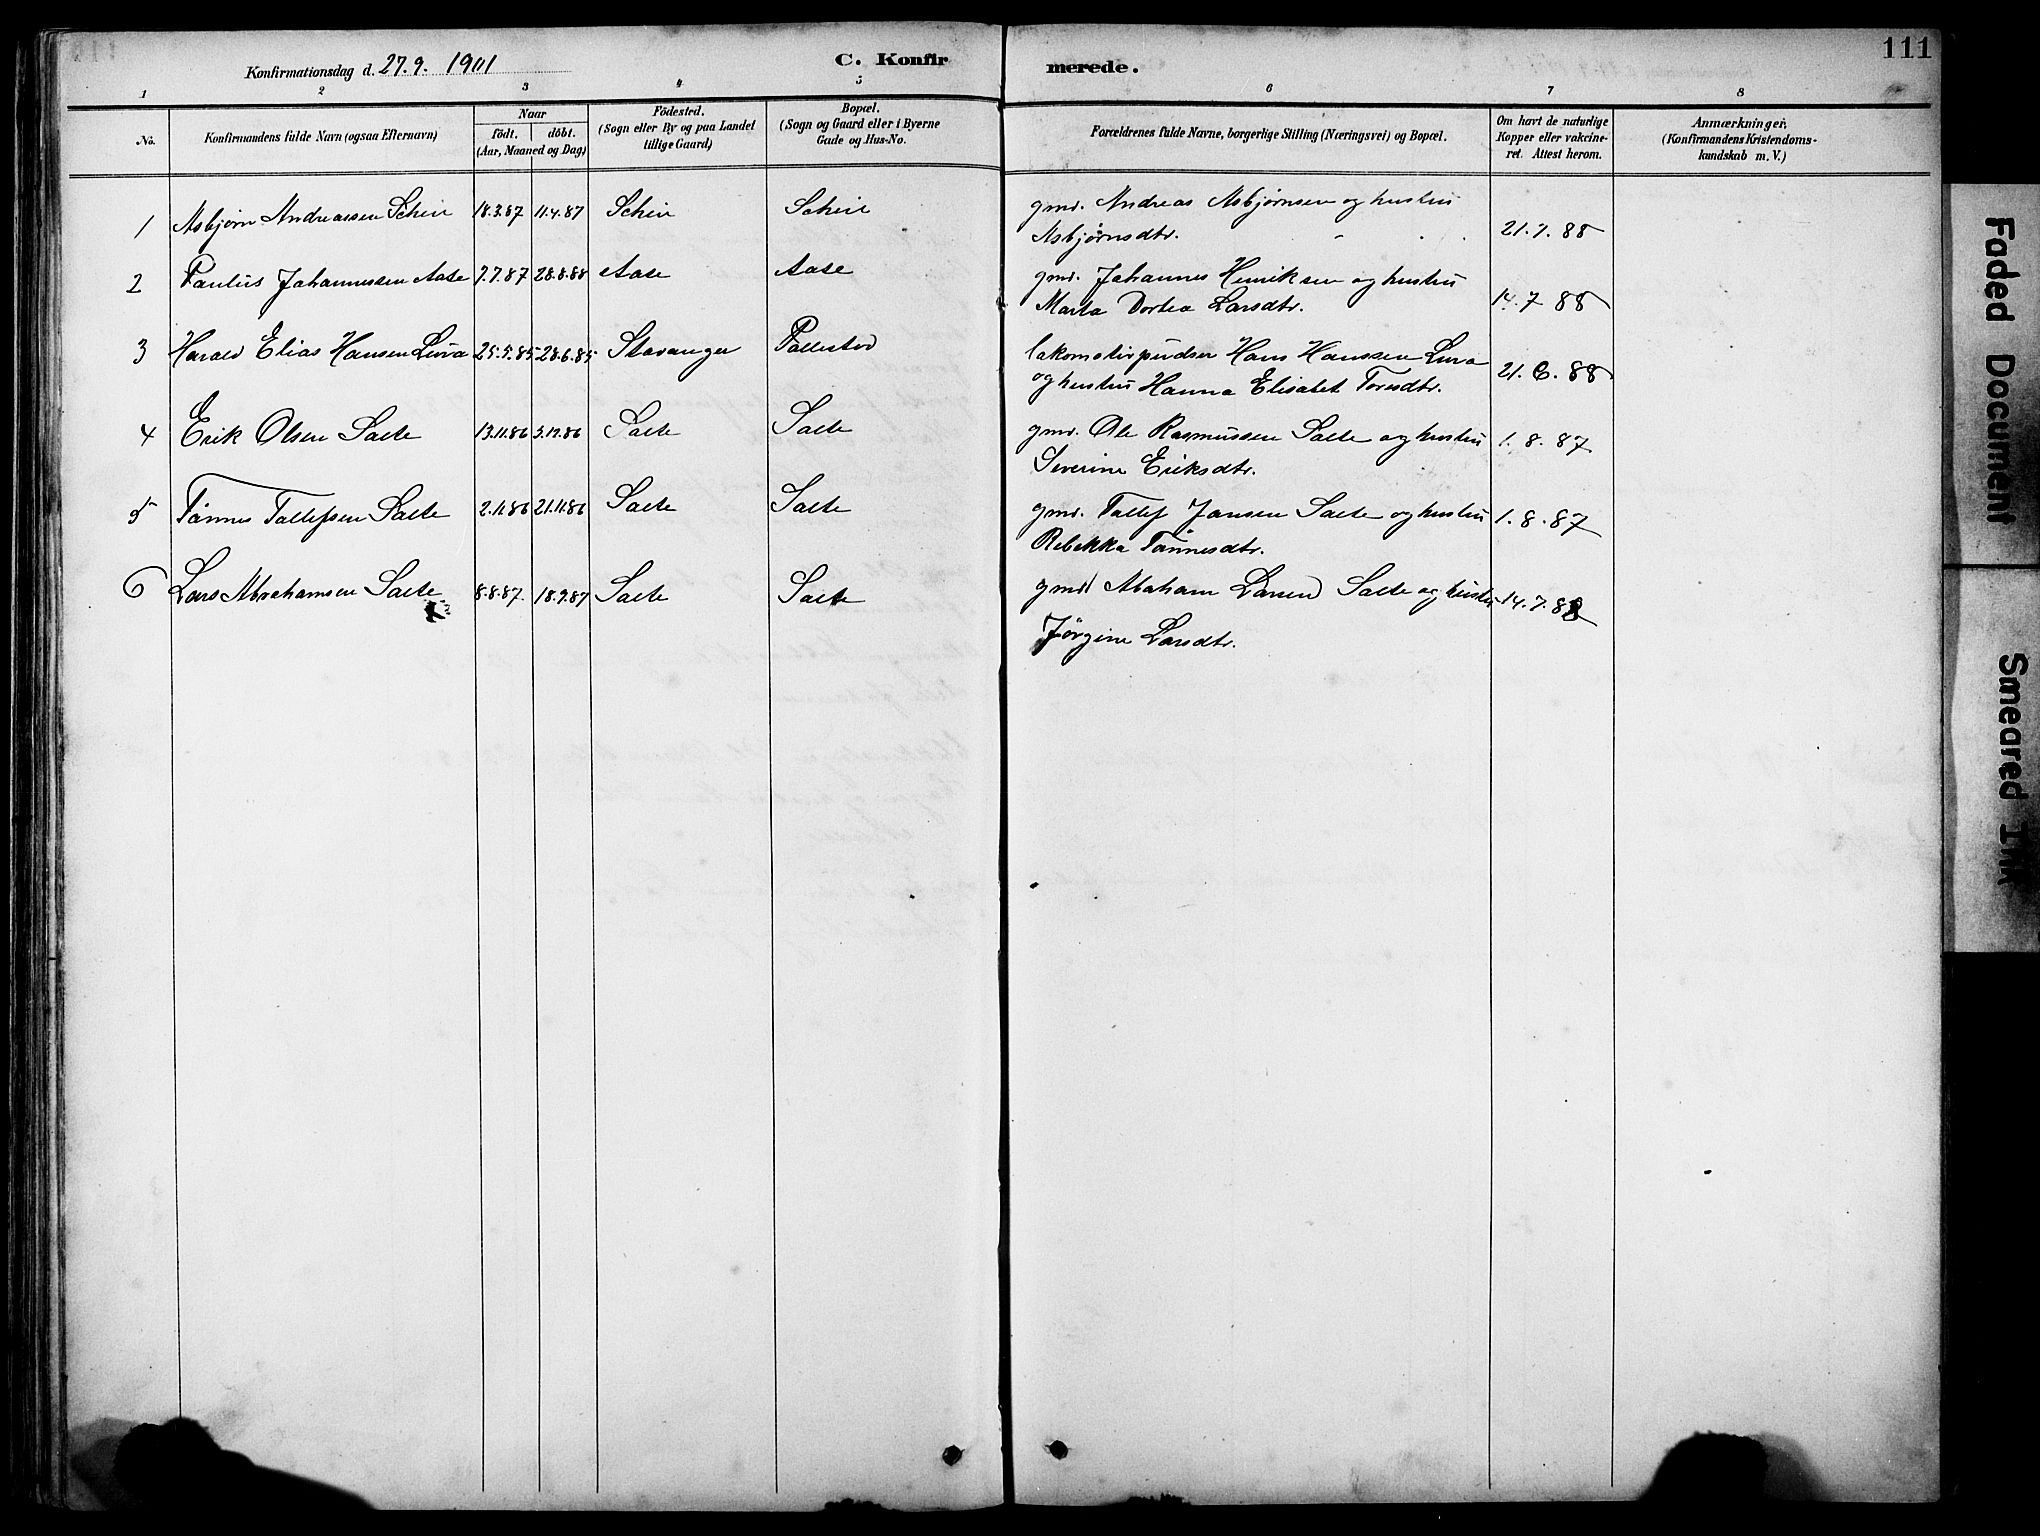 111
Konfirmationsdag d. 27.9. 1901
C. Konfirmerede.
1 2 3 4 5 6 7 8
No.
Konfirmandens fulde Navn (ogsaa Efternavn)
Naar
födt. döbt.
(Aar, Maaned og Dag)
Födested.
(Sogn eller By og paa Landet
tillige Gaard)
Bopæl.
(Sogn og Gaard eller i Byerne
Gade og Hus-No.
Forældrenes fulde Navne, borgerlige Stilling (Næringsvei) og Bopæl.
Om havt de naturlige
Kopper eller vakcine-
ret. Attest herom.
Anmærkninger,
(Konfirmandens Kristendoms-
kundskab m. V.)
1 Asbjørn Andreassen Scheie 18.3.87 11.4.87 Scheie Scheie gmd. Andreas Asbjørnsen og hustru
Asbjørnsdtr. 21.7.88
2 Paulus Johannessen Aase 7.7.87 28.8.88 Aase Aase gmd. Johannes Henriksen og hustru
Marta Dortea Larsdtr. 14.7 88
3 Harald Elias Hansen Lura 25.5.85 28.6.85 Stavanger Pollestad lokomotivpudser Hans Hanssen Lura
og hustru Hanna Elisabet Toresdtr. 21.6.88
4 Erik Olsen Salte 13.11.86 5.12.86 Salte Salte gmd. Ole Rasmussen Salte og hustru
Severine Eriksdtr. 1.8.87
5 Tønnes Tollefsen Salte 2.11.86 21.11.86 Salte Salte gmd. Tollef Jansen Salte og hustru
Rebekka Tønnesdtr. 1.8.87
6 Lars Abrahamsen Salte 8.8.87. 18.9.87 Salte Salte gmd Abraham Larsen Salte og hustru
Jørgine Larsdtr. 14.7.88
Faded Document
Smeared Ink